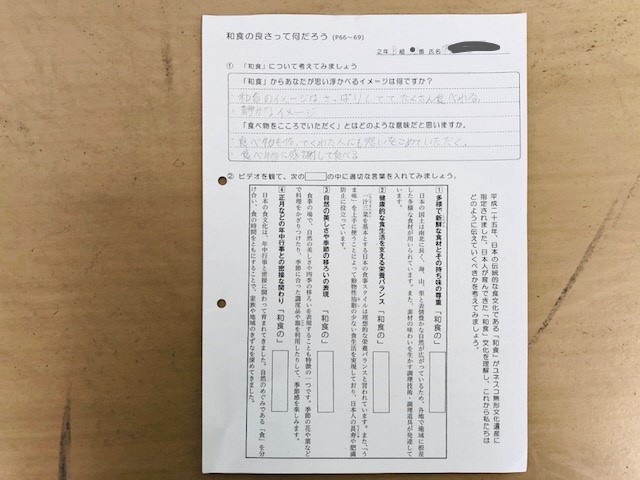 和食の良さって何だろう (P66～69)
2年 組 番 氏名
① 「和食」について考えてみましょう
「和食」からあなたが思い浮かべるイメージは何ですか？
・和食のイメージは、さっぱりしてて、たくさん食べれる。
・静かなイメージ
「食べ物をこころでいただく」とはどのような意味だと思いますか。
・食べ物を作ってくれた人にも思いをこめていただく。
食べ物に感謝して食べる
② ビデオを観て、次の の中に適切な言葉を入れてみましょう。
平成二十五年、日本の伝統的な食文化である「和食」がユネスコ無形文化遺産に
指定されました。日本人が育んできた「和食」文化を理解し、これから私たちは
どのように伝えていくべきかを考えてみましょう。
1 多様で新鮮な食材とその持ち味の尊重 「和食の」
日本の国土は南北に長く、海、山、里と表情豊かな自然が広がっているため、各地で地域に根差
した多様な食材が用いられています。また、素材の味わいを生かす調理技術・調理道具が発達して
います。
2 健康的な食生活を支える栄養バランス 「和食の」
一汁三菜を基本とする日本の食事スタイルは理想的な栄養バランスと言われています。また、「う
ま味」を上手に使うことによって動物性油脂の少ない食生活を実現しており、日本人の長寿や肥満
防止に役立っています。
3 自然の美しさや季節の移ろいの表現 「和食の」
食事の場で、自然の美しさや四季の移ろいを表現することも特徴の一つです。季節の花や葉など
で料理をかざりつけたり、季節に合った調度品や器を利用したりして、季節感を楽しみます。
4 正月などの年中行事との密接な関わり 「和食の」
日本の食文化は、年中行事と密接に関わって育まれてきました。自然のめぐみである「食」を分
け合い、食の時間をともにすることで、家族や地域のきずなを深めてきました。